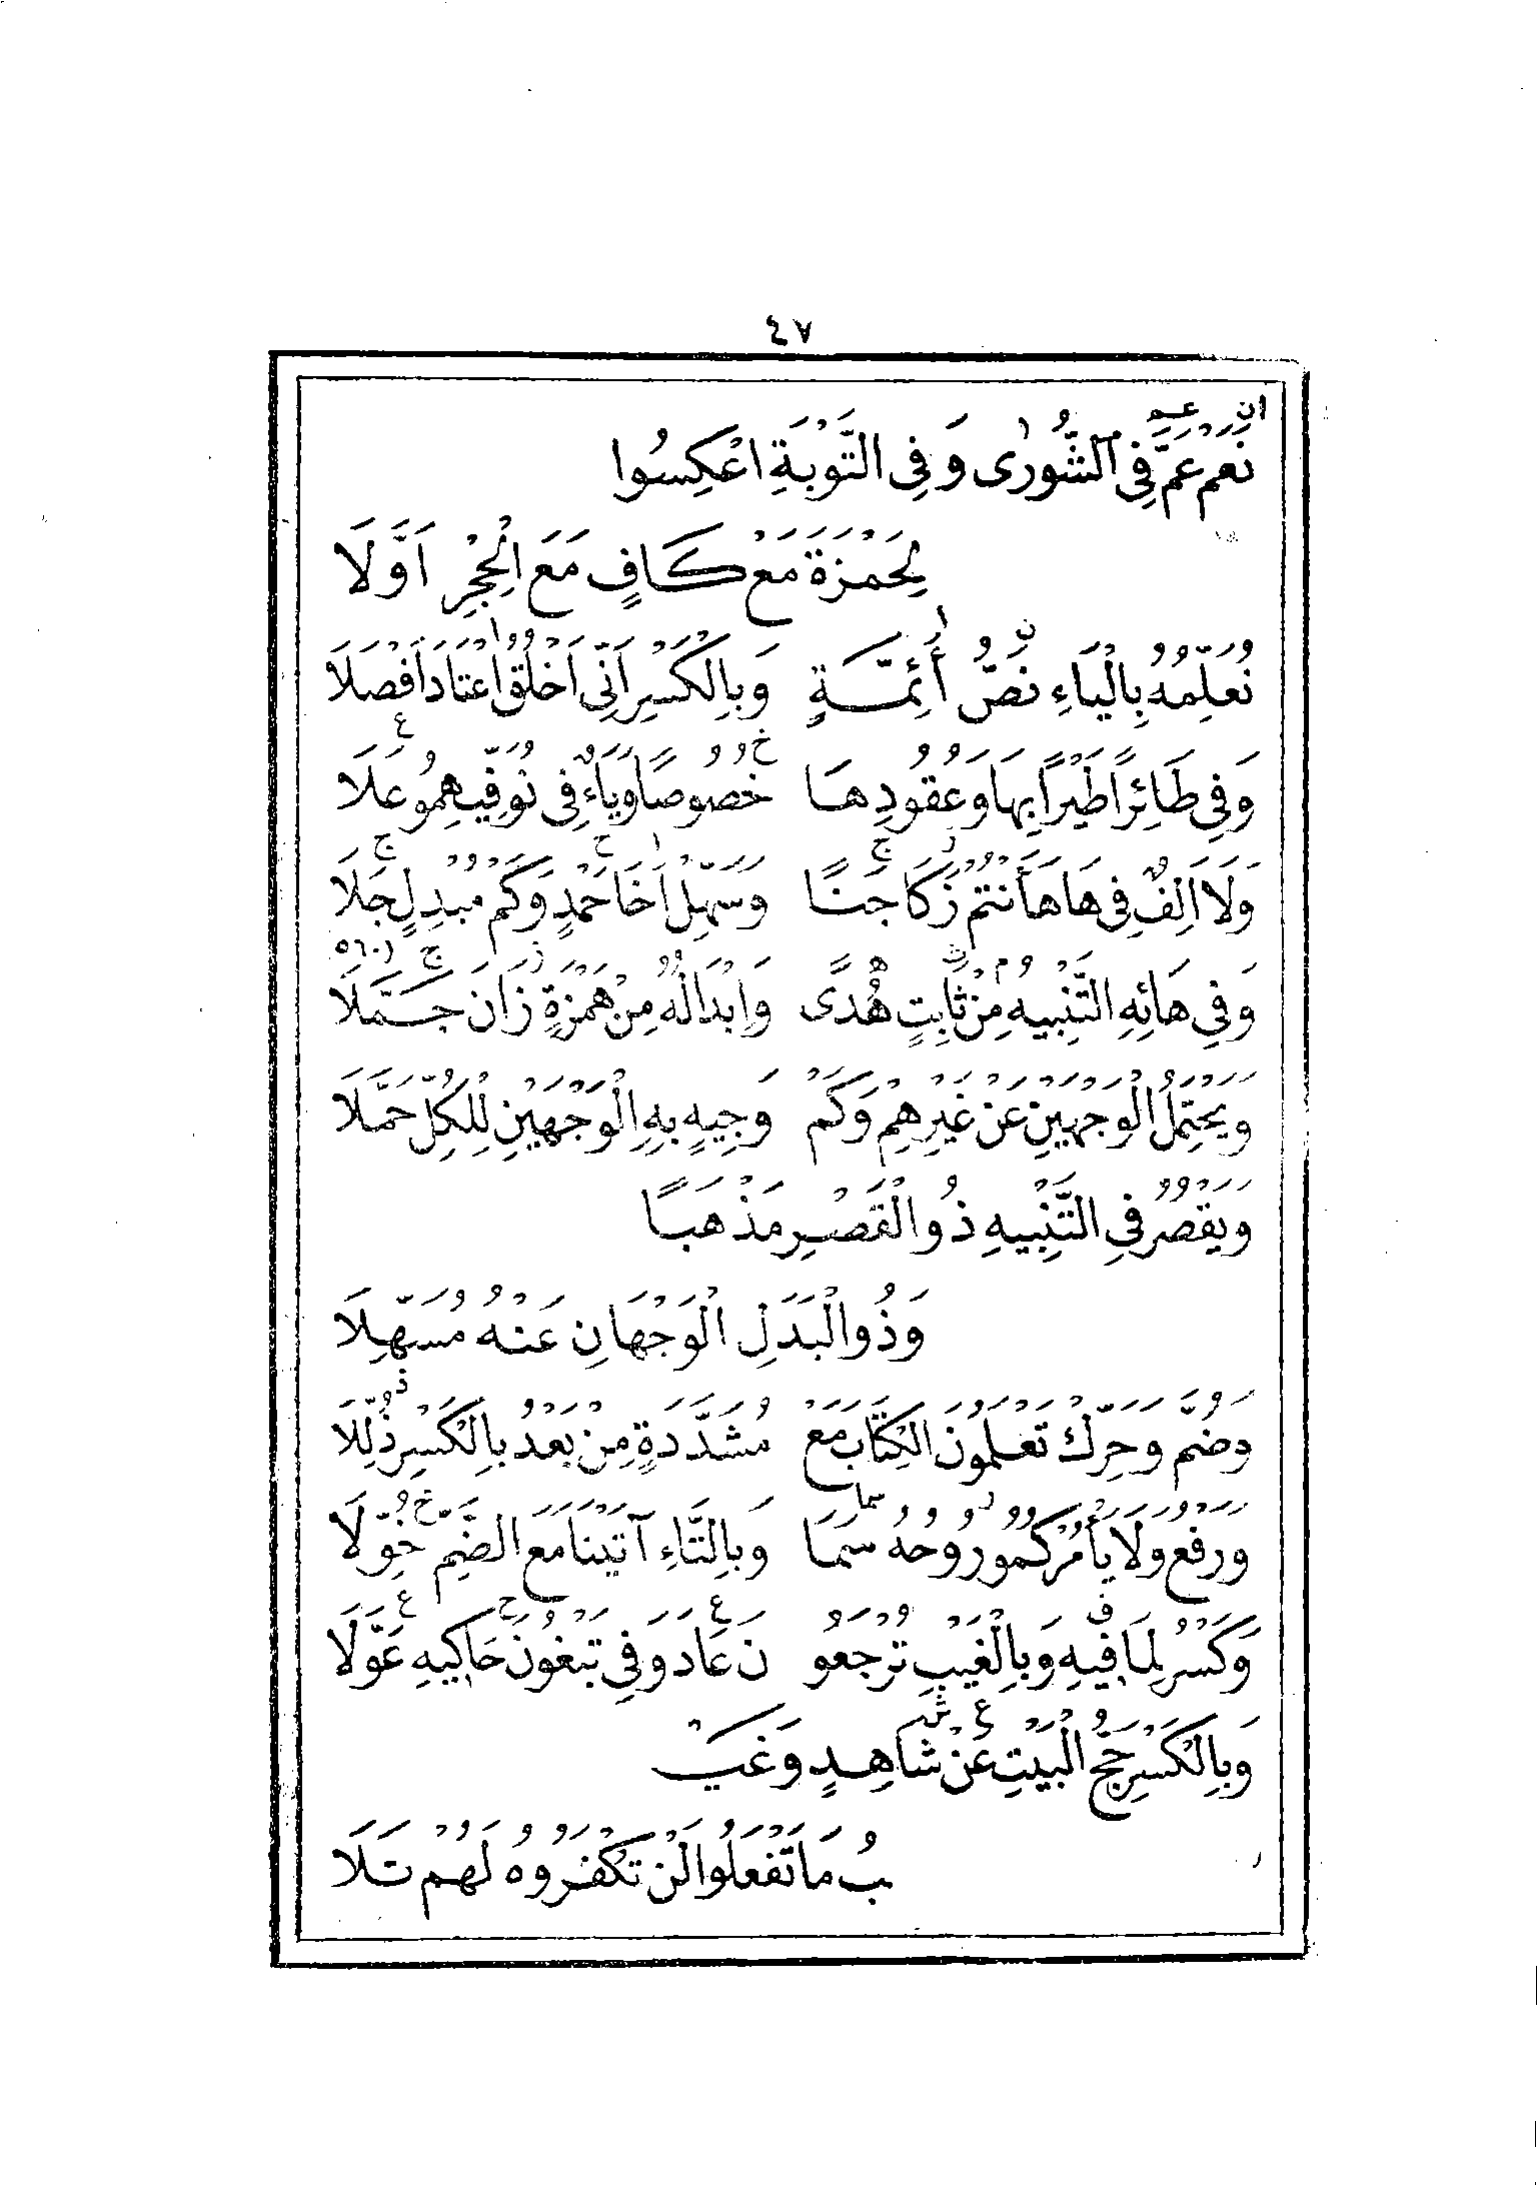 ٤٧
نَعَمْ عَمَّ فِي الشُّورَى وَفِي التَّوْبَةِ اعْكِسُوا
لِحَمْزَةَ مَعْ كَافٍ مَعَ الْحِجْرِ أَوَّلَا
نُعَلِّمُهُ بِالْيَاءِ نَصُّ أَئِمَّةٍ وَبِالْكَسْرِ أَنِّي أَخْلُقُ اعْتَادَ أَفْصَلَا
وَفِي طَائِرًا طَيْرًا بِهَا وَعُقُودِهَا خُصُوصًا وَيَاءٌ فِي نُوَفِّيهِمُو عَلَا
وَلَا أَلِفٌ فِي هَا هَأَنْتُمْ زَكَا جَنًا وَسَهِّلْ أَخَا حَمْدٍ وَكَمْ مُبْدِلٍ جَلَا
٥٦٠
وَفِي هَائِهِ التَّنْبِيهُ مِنْ ثَابِتٍ هُدًى وَإِبْدَالُهُ مِنْ هَمْزَةٍ زَانَ جَمَّلَا
وَيَحْتَمِلُ الْوَجْهَيْنِ عَنْ غَيْرِهِمْ وَكَمْ وَجِيهٍ بِهِ الْوَجْهَيْنِ لِلْكُلِّ حَمَّلَا
وَيَقْصُرُ فِي التَّنْبِيهِ ذُو الْقَصْرِ مَذْهَبًا
وَذُو الْبَدَلِ الْوَجْهَانِ عَنْهُ مُسَهِّلَا
وَضُمَّ وَحَرِّكْ تَعْلَمُونَ الْكِتَابَ مَعْ مُشَدَّدَةٍ مِنْ بَعْدُ بِالْكَسْرِ ذُلِّلَا
وَرَفْعُ وَلَا يَأْمُرْكُمُو رُوحُهُ سَمَا وَبِالتَّاءِ آتَيْنَا مَعَ الضَّمِّ خُوِّلَا
وَكَسْرُ لِمَا فِيهِ وَبِالْغَيْبِ تُرْجَعُو نَ عَادَ وَفِي تَبْغُونَ حَاكِيهِ عَوَّلَا
وَبِالْكَسْرِ حَجُّ الْبَيْتِ عَنْ شَاهِدٍ وَغَيْـ
ـبُ مَا تَفْعَلُوا لَنْ تُكْفَرُوهُ لَهُمْ تَلَا